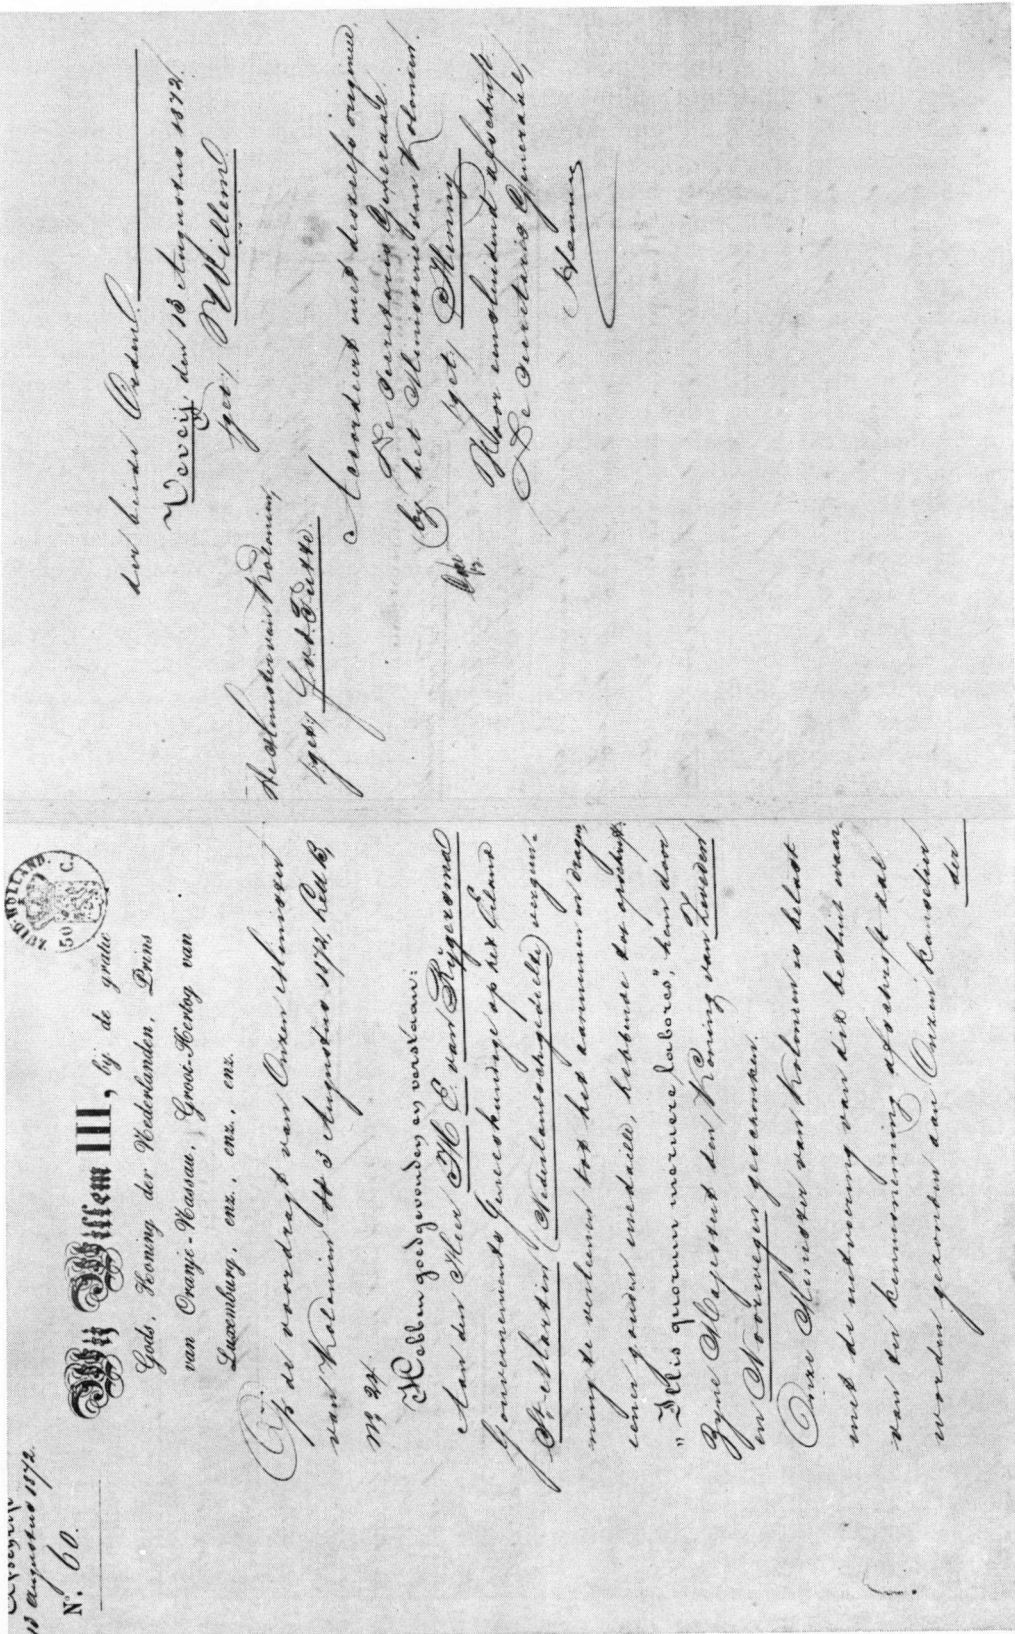 Afschrift
13 Augustus 1872.
N°. 60.
ZUID-HOLLAND.
50 C.
Wij Willem III, bij de gratie
Gods, Koning der Nederlanden, Prins
van Oranje-Nassau, Groot-Hertog van
Luxemburg, enz., enz., enz.
Op de voordragt van Onzen Minister
van Koloniën dd 3 Augustus 1872,
N° 24.
Hebben goedgevonden en verstaan:
Aan den Heer H. E. van Rijgersma
Gouvernements Geneeskundige op het Eiland
St. Martin (Nederlandsch gedeelte) vergun-
ning te verleenen tot het aannemen en dragen
eener gouden medaille, hebbende tot opschrift:
„Illis quorum meruere labores", hem door
Zijne Majesteit den Koning van Zweden
en Noorwegen geschonken.
Onze Minister van Koloniën is belast
met de uitvoering van dit besluit waar-
van ter kennisneming afschrift zal
worden gezonden aan Onzen Kanselier
der
der beide Orden.
Vevey, den 13 Augustus 1872.
(get) Willem
De Minister van Koloniën,
(get)
Accordeert met deszelfs origineel.
De Secretaris Generaal
bij het Ministerie van Koloniën.
(get) Henny
Voor eensluidend afschrift.
De Secretaris Generaal,
Henny